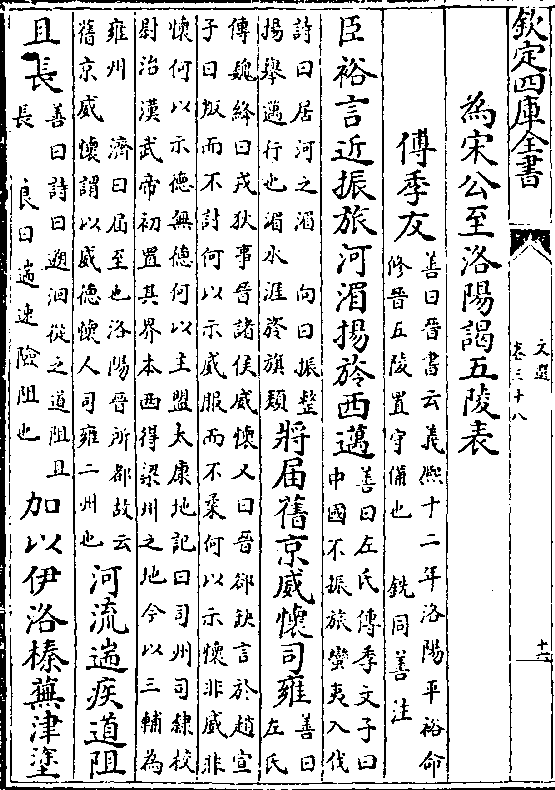 欽定四庫全書
文選
卷三十八
十六
為宋公至洛陽謁五陵表
傅季友
善曰晉書云義熙十二年洛陽平裕命
修晉五陵置守備也 銑同善注
臣裕言近振旅河湄揚旍西邁
善曰左氏傳季文子曰
中國不振旅蠻夷入伐
詩曰居河之湄 向曰振整
揚舉邁行也湄水涯旍旗類
將届舊京威懷司雍
善曰
左氏
傳魏絳曰戎狄事晉諸侯威懷又曰晉郤缺言於趙宣
子曰叛而不討何以示威服而不柔何以示懷非威非
懷何以示德無德何以主盟太康地記曰司州司隸校
尉治漢武帝初置其界本西得梁州之地今以三輔為
雍州 濟曰届至也洛陽晉所都故云
舊京威懷謂以威德懷人司雍二州也
河流遄疾道阻
且長
善曰詩曰遡洄從之道阻且
長 良曰遄速險阻也
加以伊洛榛蕪津塗